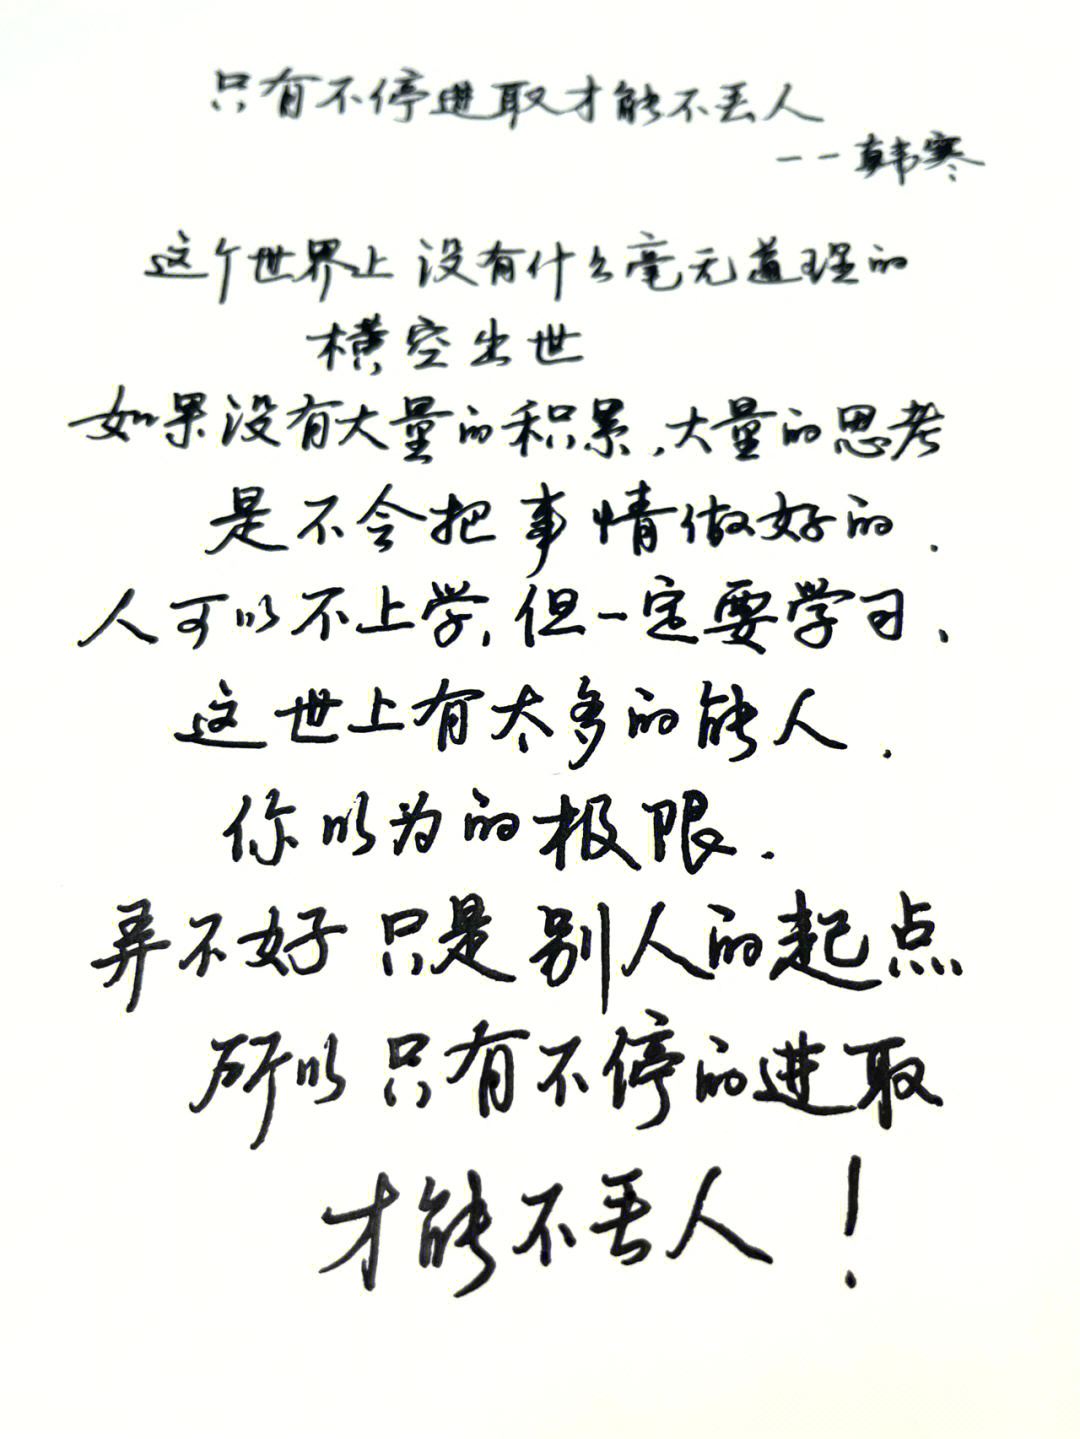 只有不停进取才能不丢人
--韩寒
这个世界上 没有什么毫无道理的
横空出世
如果没有大量的积累,大量的思考
是不会把事情做好的.
人可以不上学,但一定要学习、
这世上有太多的能人.
你以为的极限.
弄不好 只是别人的起点
所以只有不停的进取
才能不丢人!